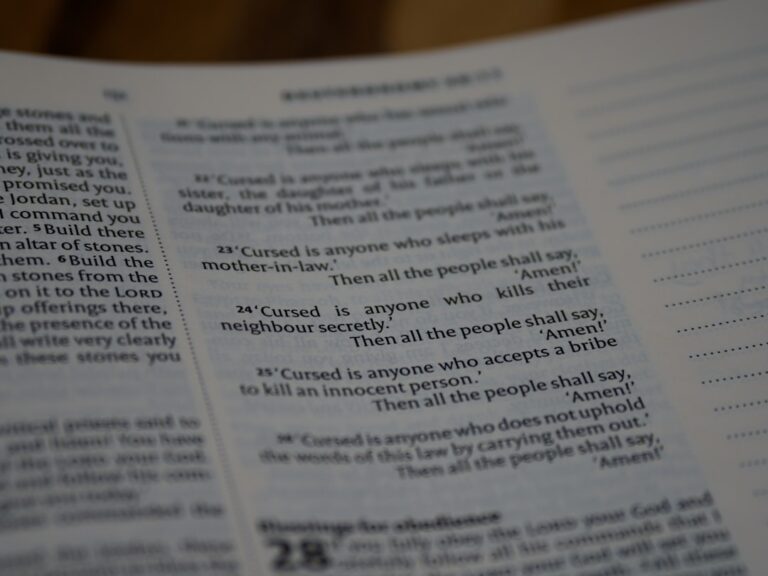 e stones and
them all the
rossed over to
is giving you,
ney, just as the
promised you.
e Jordan, set up
I command you
ter. 5 Build there
n altar of stones.
them. 6 Build the
n stones from the
on it to the LORD
p offerings there,
the presence of the
ll write very clearly
n these stones you
and listen! You have
the LORD your God
and follow his com-
commanded the
'Cursed is anyone who has sexual rela-
tions with any animal.'
Then all the people shall say,
'Amen!'
22 'Cursed is anyone who sleeps with his
sister, the daughter of his father or the
daughter of his mother.'
Then all the people shall say,
'Amen!'
23 'Cursed is anyone who sleeps with his
mother-in-law.'
Then all the people shall say,
'Amen!'
24 'Cursed is anyone who kills their
neighbour secretly.'
Then all the people shall say,
'Amen!'
25 'Cursed is anyone who accepts a bribe
to kill an innocent person.'
Then all the people shall say,
'Amen!'
26 'Cursed is anyone who does not uphold
the words of this law by carrying them out.'
Then all the people shall say,
'Amen!'
Blessings for obedience
28 If you fully obey the LORD your God and
carefully follow all his commands that I